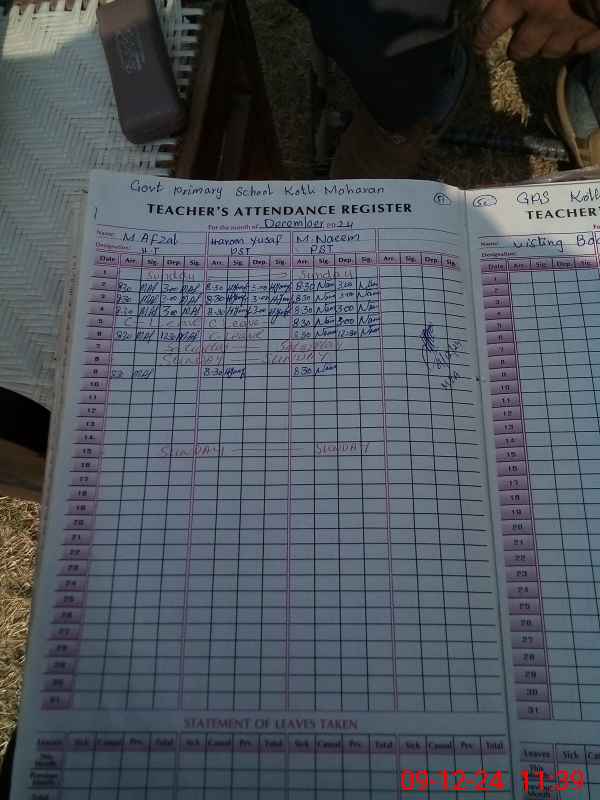 Govt primary School Kotli Moharan
51
TEACHER'S ATTENDANCE REGISTER
For the month of December 2024
Name: M. Afzal Haroon Yusaf M. Naeem
Designation: H.T PST PST
Date Arr. Sig. Dep. Sig. Arr. Sig. Dep. Sig. Arr. Sig. Dep. Sig. Arr. Sig. Dep. Sig.
1 Sunday Sunday
2 8:30 3:00 8:30 3:00 8:30 3:00
3 8:30 3:00 8:30 3:00 8:30 3:00
4 8:30 3:00 8:30 3:00 8:30 3:00
5 C Leave C Leave 8:30 3:00
6 8:30 12:30 C Leave 8:30 12:30
7
8 SUNDAY SUNDAY
9 8:30 8:30 8:30
10
11
12
13
14
15 SUNDAY SUNDAY
16
17
18
19
20
21
22
23
24
25
26
27
28
29
30
31
STATEMENT OF LEAVES TAKEN
Leaves Sick Casual Prv. Total Sick Casual Prv. Total Sick Casual Prv. Total Sick Casual Prv. Total
This Month
Previous Month
52
GPS Kotli
TEACHER'S
Name:
Designation:
Date Arr. Sig. Dep. Sig. Arr.
1
2
3
4
5
6
7
8
9
10
11
12
13
14
15
16
17
18
19
20
21
22
23
24
25
26
27
28
29
30
31
Leaves Sick
This Month
Month
09-12-24 11:39